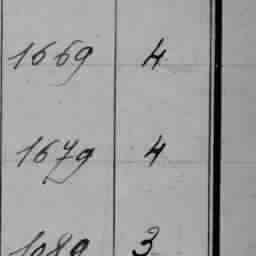 1669 4
1679 4
1689 3